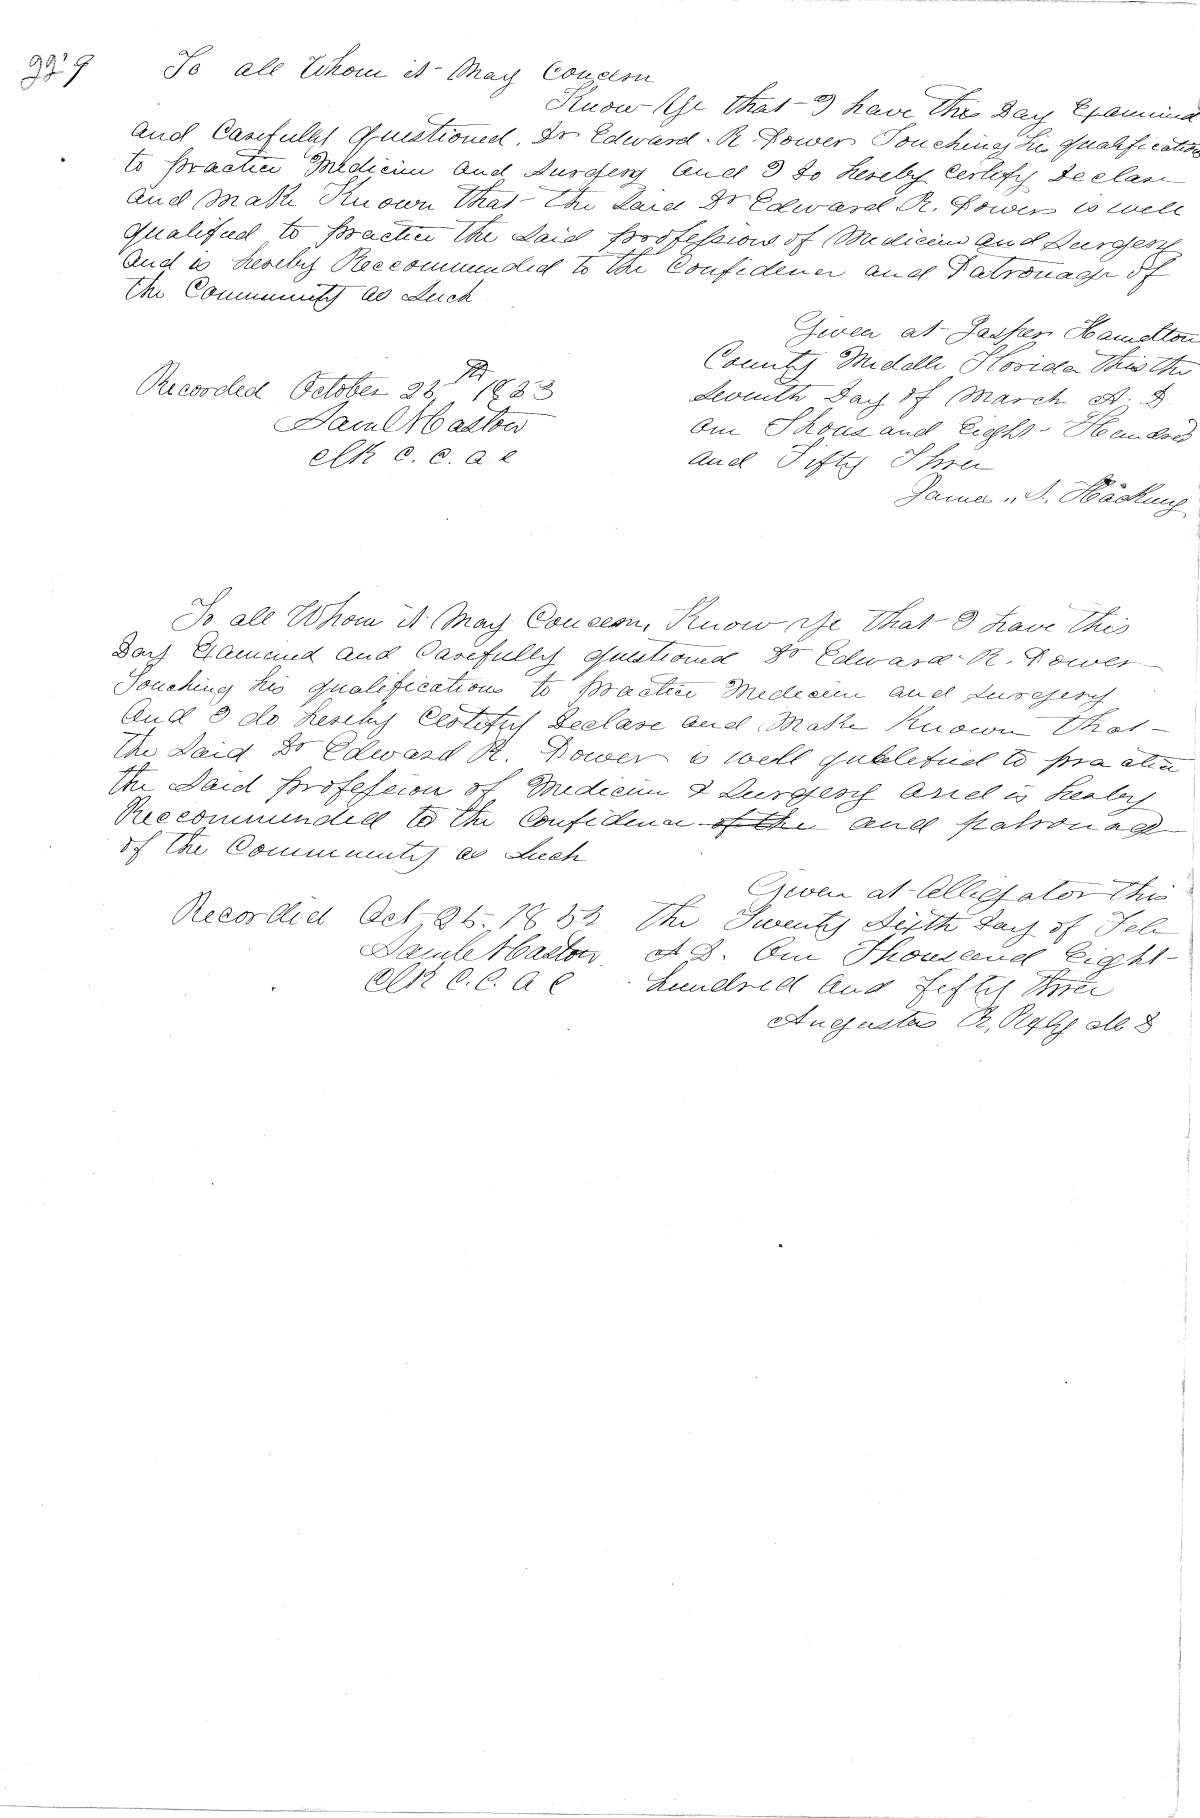 To all Whom it May Concern
Know Ye that I have this Day Examined
and Carefully Questioned, Dr Edward. R. Power Touching his qualification
to practice Medicine and Surgery and I do hereby Certify Declare
and Make Known that the Said Dr Edward R. Power is well
qualified to practice the Said profession of Medicine and Surgery
and is hereby Reccommended to the Confidence and Patronage of
the Community as Such
Given at Jasper Hamelton
County Middle Florida this the
Seventh Day of March A. D.
One Thousand Eight Hundred
and Fifty Three
Recorded October 25th 1853
Saml Haston
Clk C. C. a c
To all Whom it May Concern, Know Ye that I have this
Day Examined and Carefully questioned Dr Edward. R. Power
Touching his qualifications to practice Medicine and Surgery
and I do hereby Certify Declare and Make Known that
the Said Dr Edward R. Power is well qualified to practice
the Said profession of Medicine & Surgery and is hereby
Reccommended to the Confidence of the and patronage
of the Community as Such
Given at Alligator this
the Twenty Sixth Day of Feb
A D. One Thousand Eight
hundred and fifty Three
Augustus R, M D
Recorded Oct 25. 1853
Saml Haston
Clk C. C. A C